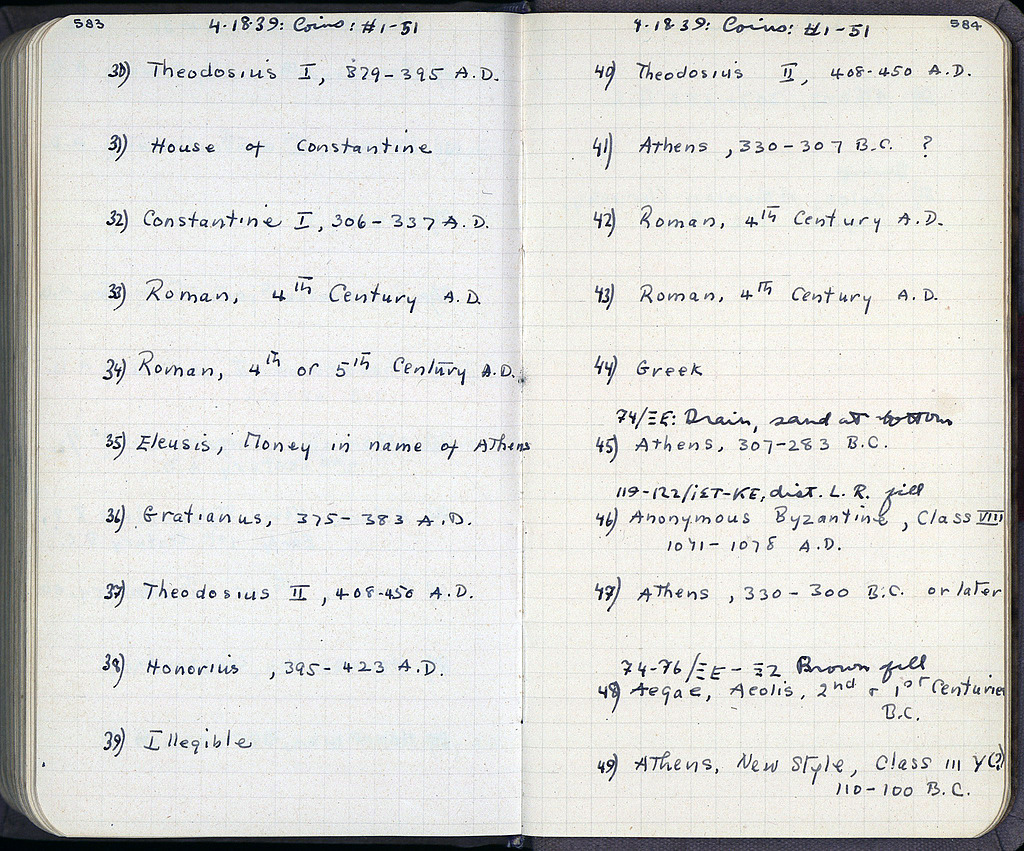 583
4·18·39: Coins: #1-51
30) Theodosius I, 379-395 A.D.
31) House of Constantine
32) Constantine I, 306-337 A.D.
33) Roman, 4th Century A.D.
34) Roman, 4th or 5th Century A.D.
35) Eleusis, Money in name of Athens
36) Gratianus, 375-383 A.D.
37) Theodosius II, 408-450 A.D.
38) Honorius, 395-423 A.D.
39) Illegible
584
4·18·39: Coins: #1-51
40) Theodosius II, 408-450 A.D.
41) Athens, 330-307 B.C. ?
42) Roman, 4th Century A.D.
43) Roman, 4th Century A.D.
44) Greek
74/ΞΕ: Drain, sand at bottom
45) Athens, 307-283 B.C.
119-122/ΙΣΤ-ΚΕ, dist. L. R. fill
46) Anonymous Byzantine, Class VIII
1071-1078 A.D.
47) Athens, 330-300 B.C. or later
74-76/ΞΕ-ΞΖ Brown fill
48) Aegae, Aeolis, 2nd + 1st Centuries
B.C.
49) Athens, New Style, Class III (?)
110-100 B.C.